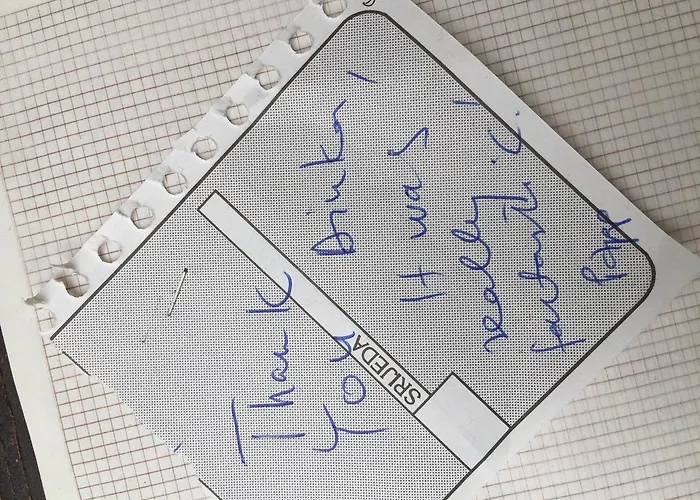 Thank
You Dinko!
It was
really
fantastic!
SRIJEDA